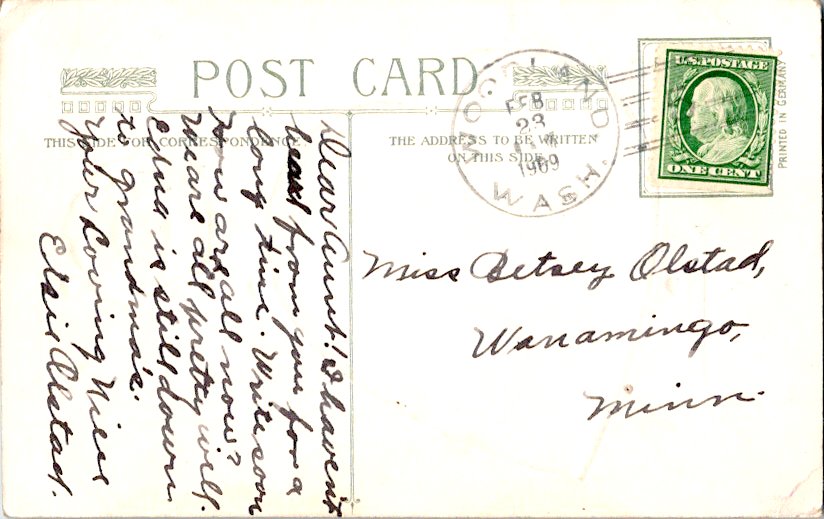 POST CARD
THIS SIDE FOR CORRESPONDENCE.
THE ADDRESS TO BE WRITTEN
ON THIS SIDE
FEB
23
1909
WASH.
U.S. POSTAGE
ONE CENT
PRINTED IN GERMANY
Dear Aunt! I haven't
heard from you for a
long time. Write soon
How are all now?
We are all pretty well.
Edna is still down
to grandma's.
Your Loving Niece
Elsie Olstad.
Miss Betsey Olstad,
Wanamingo,
Minn.